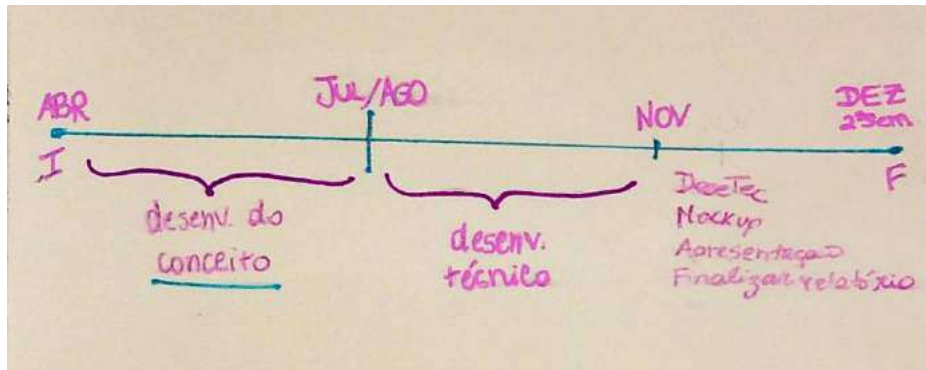 ABR
JUL/AGO
NOV
DEZ
2ªsem
I
F
desenv. do
conceito
desenv.
técnico
DeseTec
Mockup
Apresentação
Finalizar relatório